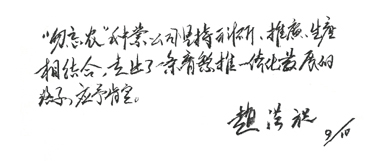 “勿忘农”种业公司坚持科研、推广、生产
相结合,走出了一条育繁推一体化发展的
路子,应予肯定。
赵洪祝
9/10